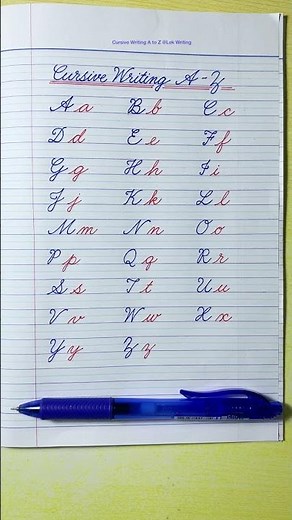 Cursive Writing A to Z @Lek Writing
Cursive Writing A-Z
A a B b C c
D d E e F f
G g H h I i
J j K k L l
M m N n O o
P p Q q R r
S s T t U u
V v W w X x
Y y Z z